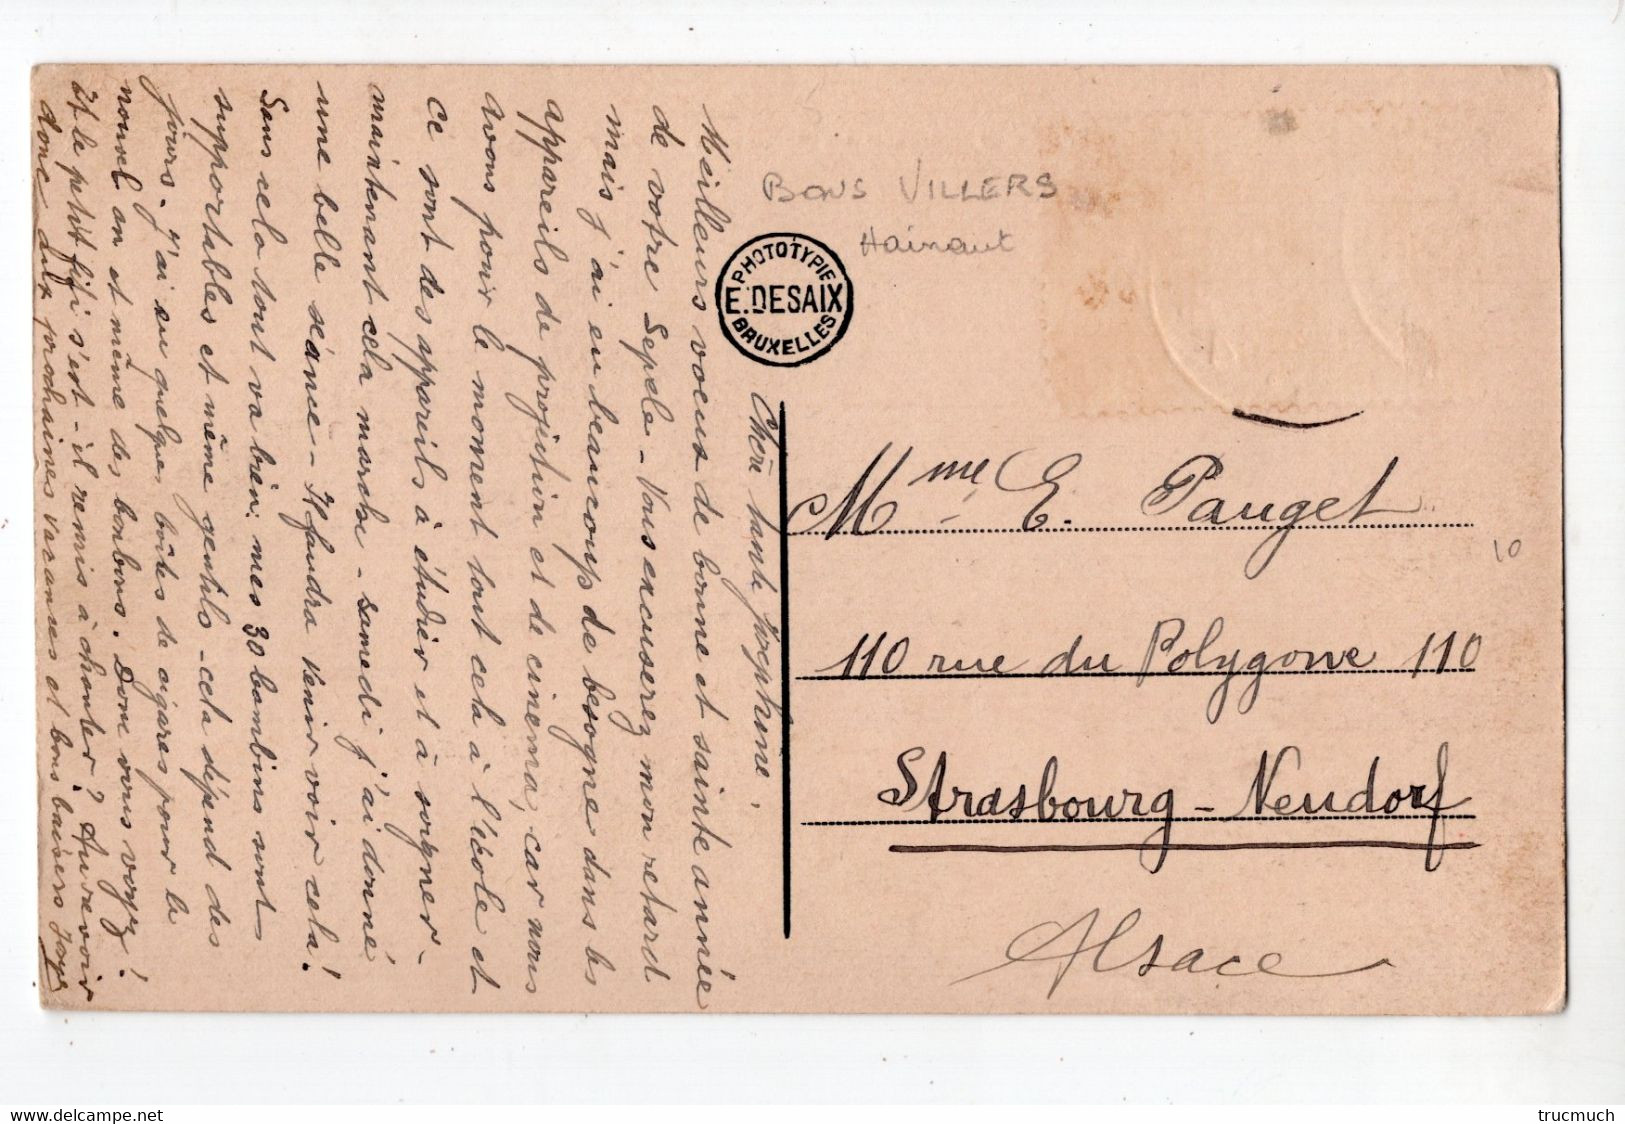 Chère tante Joséphine.
Meilleurs voeux de bonne et sainte année
de votre Sepele - Vous excuserez mon retard
mais j'ai eu beaucoup de besogne dans les
appareils de projection et de cinema, car nous
avons pour le moment tout cela à l'école et
ce sont des appareils à étudier et à soigner -
maintenant cela marche - samedi j'ai donné
une belle séance - Il faudra venir voir cela!
Sans cela tout va bien; mes 30 bambins sont
supportables et même gentils - cela dépend des
jours. J'ai eu quelques boîtes de cigares pour le
nouvel an et même des bonbons. Donc vous voyez!
Et le petit fifi s'est-il remis à chanter? Au revoir
donc aux prochaines vacances et bons baisers
BONS VILLERS
Hainaut
PHOTOTYPIE
E. DESAIX
BRUXELLES
Mme E. Pauget
10
110 rue du Polygone 110
Strasbourg - Neudorf
Alsace
delcampe.net
trucmuch